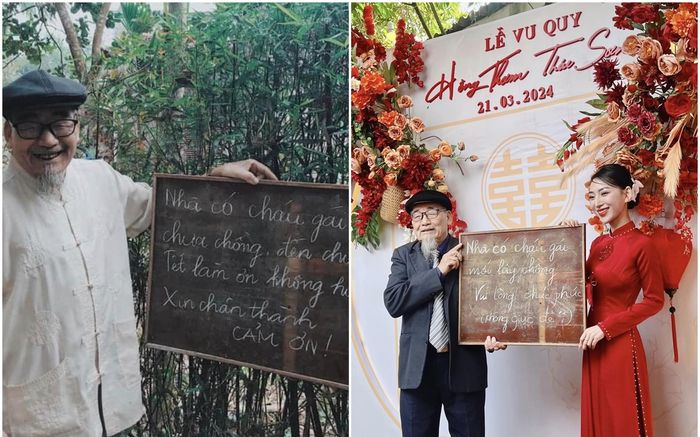 Nhà có cháu gái
chưa chồng, đến ch
Tết làm ơn không h
Xin chân thành
CẢM ƠN!
LỄ VU QUY
Hồng Thơm
21.03.2024
Nhà có cháu gái
mới lấy chồng
Vui lòng chúc phúc
(không giục đẻ ạ)